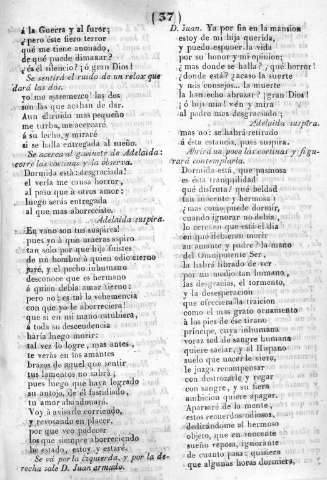 (37)
á la Guerra y al furor;
¿pero éste fiero terror
qué me tiene anonado,
de qué puede dimanar?
¿es él silencio? ¡ó gran Dios!
Se sentirá el ruido de un relox que
dará las dos.
yo me estremezco! las dos
son las que acaban de dar.
Aun el ruido mas pequeño
me turba, me acercaré
á su lecho, y miraré
si se halla entregada al sueño.
Se acerca al gavinete de Adelaida:
corre las cortinas y la observa.
Dormida está: desgraciada!
el verla me causa horror,
al paso que á otro amor:
luego serás entregada
al que mas aborreciste.
Adelaida suspira.
En vano son tus suspiros!
pues yo á que mueras aspiro
tan solo por que hija fuistes
de un hombre á quien odio eterno
juré, y el pecho inhumano
desconoce que es hermano
á quien debia amar tierno;
pero no: es tal la vehemencia
con que yo le aborreciera!
que si en mi mano estubiera,
á toda su descendencia
haría luego morir:
tal vez lo logre, mas antes,
te verás en los amantes
brazos de aquel que sentir
tus lamentos no sabrá;
pues luego que haya logrado
su antojo, de él fastidiado,
tu amor abandonará.
Voy á avisarle corriendo,
y revosando en placer,
por que veo padecer
los que siempre aborreciendo
he estado, estoy, y estaré.
Se vá por la izquierda, y por la de-
recha sale D. Juan armado.
D. Juan. Ya por fin en la mansion
estoy de mi hija querida,
y puedo esponer la vida
por su honor y mi opinion;
¿mas donde se halla? ¿qué horror!
¿donde está? ¿acaso la suerte
y mis consejos.. la muerte
la han hecho abrazar? ¡gran Dios!
¡ó hija mia! vén y mira
al padre mas desgraciado;
Adelaida suspira.
mas no: se habrá retirado
á ésta estancia, pues suspira.
Abrirá un poco las cortinas y figu-
rará contemplarla.
Dormida está, que pasmosa
es ésta tranquilidad!
qué disfruta! qué beldad
tan inocente y hermosa!
mas como puede dormir,
cuando ignorar no debia,
lo crecido que está el dia
en que deberan morir
su amante y padre? la mano
del Omnipotente Ser,
la habrá librado de ver
por un medio tan humano,
las desgracias, el tormento,
y la desesperacion
que ofreciera la traicion
como el mas grato ornamento
á los pies de ése tirano
príncipe, cuya inhumana
voraz sed de sangre humana
quiere saciar, y al Hispano
suelo que nacer le viera,
le juzga recompensar
con destrozarle y regar
con sangre, y su fiera
ambicion quiere apagar.
Apartaré de la mente,
estos recuerdos odiosos,
dedicándome al hermoso
objeto, que en renuente
sueño reposa, ignorante
de cuanto pasa: quisiera
que algunas horas durmiera,